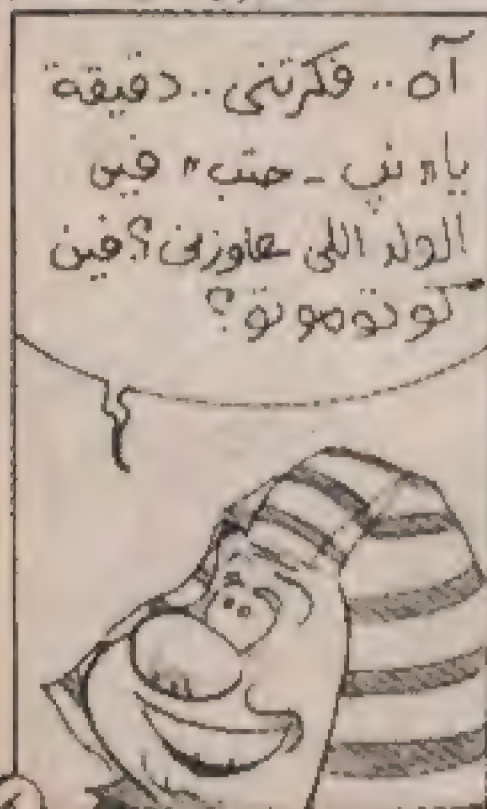 آه.. فكرتني.. دقيقة
يا "نب - حتب" فين
الولد اللي عاوزني؟ فين
توتو موتو؟